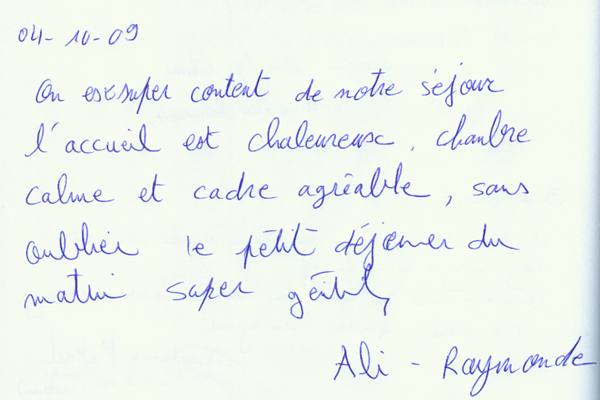 04-10-09
On est super content de notre séjour
l'accueil est chaleureuse, chambre
calme et cadre agréable, sans
oublier le pétit déjeuner du
matin super géntil,
Ali - Raymonde